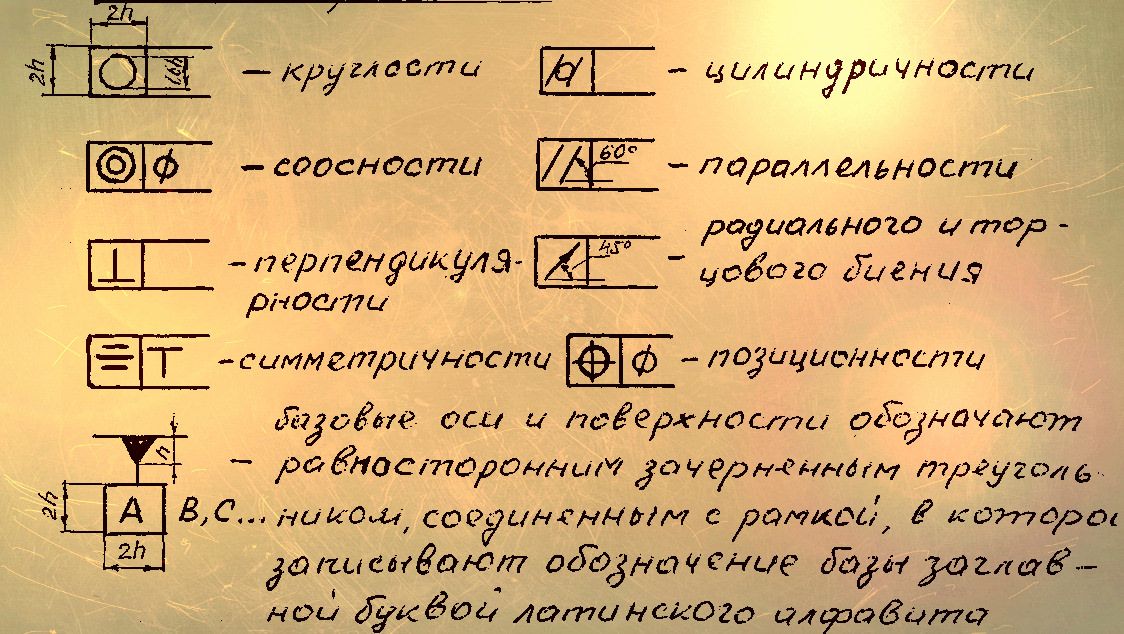 2h
2h 1,6h – круглости – цилиндричности
Ф – соосности 60° – параллельности
– перпендикуля- 45° – радиального и тор-
рности цового биения
Т – симметричности Ф – позиционности
базовые оси и поверхности обозначают
h – равносторонним зачерненным треуголь-
2h А В, С... ником, соединенным с рамкой, в которой
2h записывают обозначение базы заглав-
ной буквой латинского алфавита